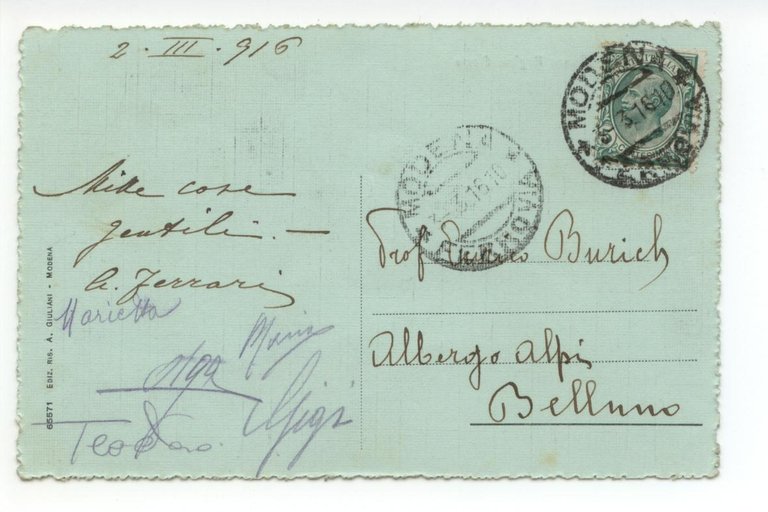 2 · III · 916
Mille cose
gentili. —
G. Ferrari
Marietta
Olga
Gigi
Teodoro
65571 EDIZ. RIS. A. GIULIANI - MODENA
MODENA
FERROVIA
MODENA
FERROVIA
Prof. Enrico Burich
Albergo Alpi
Belluno